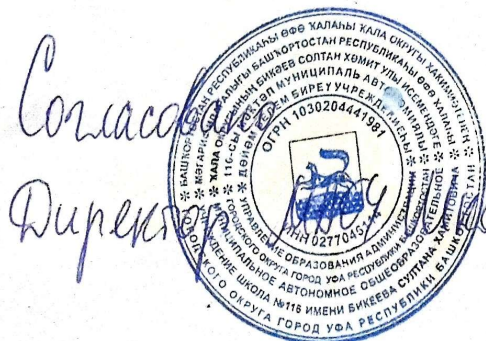 Согласовано
Директор
БАШҠОРТОСТАН РЕСПУБЛИКАҺЫ ӨФӨ ҠАЛАҺЫ ҠАЛА ОКРУГЫ ХАКИМИӘТЕНЕҢ
МӘҒАРИФ
БАШҠОРТОСТАН РЕСПУБЛИКАҺЫ ӨФӨ ҠАЛАҺЫ
ҠАЛА
БИКӘЕВ СОЛТАН ХӘМИТ УЛЫ ИСЕМЕНДӘГЕ
116-СЫ
МУНИЦИПАЛЬ
БЕЛЕМ БИРЕҮ УЧРЕЖДЕНИЕҺЫ
ОГРН 1030204441981
ИНН
УПРАВЛЕНИЕ ОБРАЗОВАНИЯ АДМИНИСТРАЦИИ
ГОРОДСКОГО ОКРУГА ГОРОД УФА РЕСПУБЛИКИ БАШКОРТОСТАН
МУНИЦИПАЛЬНОЕ АВТОНОМНОЕ ОБЩЕОБРАЗОВАТЕЛЬНОЕ
УЧРЕЖДЕНИЕ ШКОЛА №116 ИМЕНИ БИКЕЕВА СУЛТАНА ХАМИТОВИЧА
ГОРОДСКОГО ОКРУГА ГОРОД УФА РЕСПУБЛИКИ БАШКОРТОСТАН